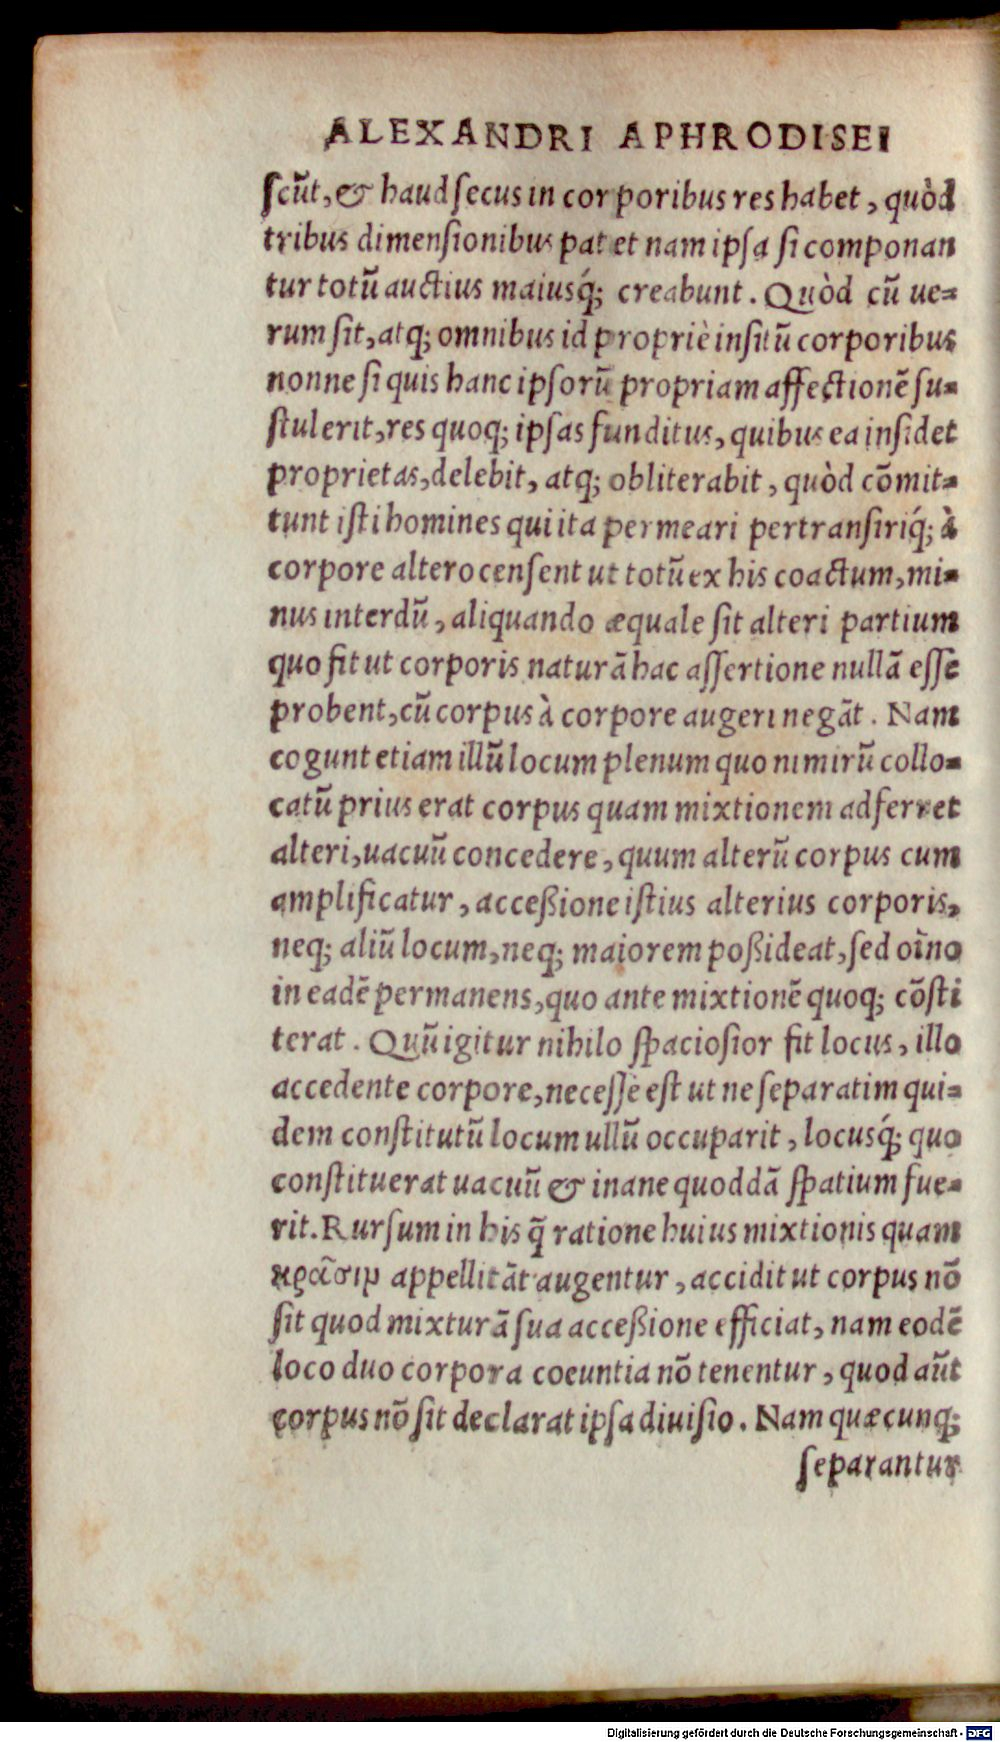 ALEXANDRI APHRODISEI
ſcūt, & haud ſecus in corporibus res habet, quòd
tribus dimenſionibus patet nam ipſa ſi componan
tur totū auctius maiusq́; creabunt. Quòd cū ue-
rum ſit, atq; omnibus id propriè inſitū corporibus
nonne ſi quis hanc ipſorū propriam affectionē ſu-
ſtulerit, res quoq; ipſas funditus, quibus ea inſidet
proprietas, delebit, atq; obliterabit, quòd cōmit-
tunt iſti homines qui ita permeari pertranſiriq́; à
corpore altero cenſent ut totū ex his coactum, mi-
nus interdū, aliquando æquale ſit alteri partium
quo fit ut corporis naturā hac aſſertione nullā eſſe
probent, cū corpus à corpore augeri negāt. Nam
cogunt etiam illū locum plenum quo nimirū collo-
catū prius erat corpus quam mixtionem adferret
alteri, uacuū concedere, quum alterū corpus cum
amplificatur, acceßione iſtius alterius corporis,
neq; aliū locum, neq; maiorem poßideat, ſed oīno
in eadē permanens, quo ante mixtionē quoq; cōſti
terat. Quū igitur nihilo ſpacioſior fit locus, illo
accedente corpore, neceſſe eſt ut ne ſeparatim qui-
dem conſtitutū locum ullū occuparit, locusq́; quo
conſtituerat uacuū & inane quoddā ſpatium fue-
rit. Rurſum in his q̄ ratione huius mixtionis quam
κρᾶσιν appellitāt augentur, accidit ut corpus nō
ſit quod mixturā ſua acceßione efficiat, nam eodē
loco duo corpora coeuntia nō tenentur, quod aūt
corpus nō ſit declarat ipſa diuiſio. Nam quæcunq;
ſeparantur
Digitalisierung gefördert durch die Deutsche Forschungsgemeinschaft - DFG